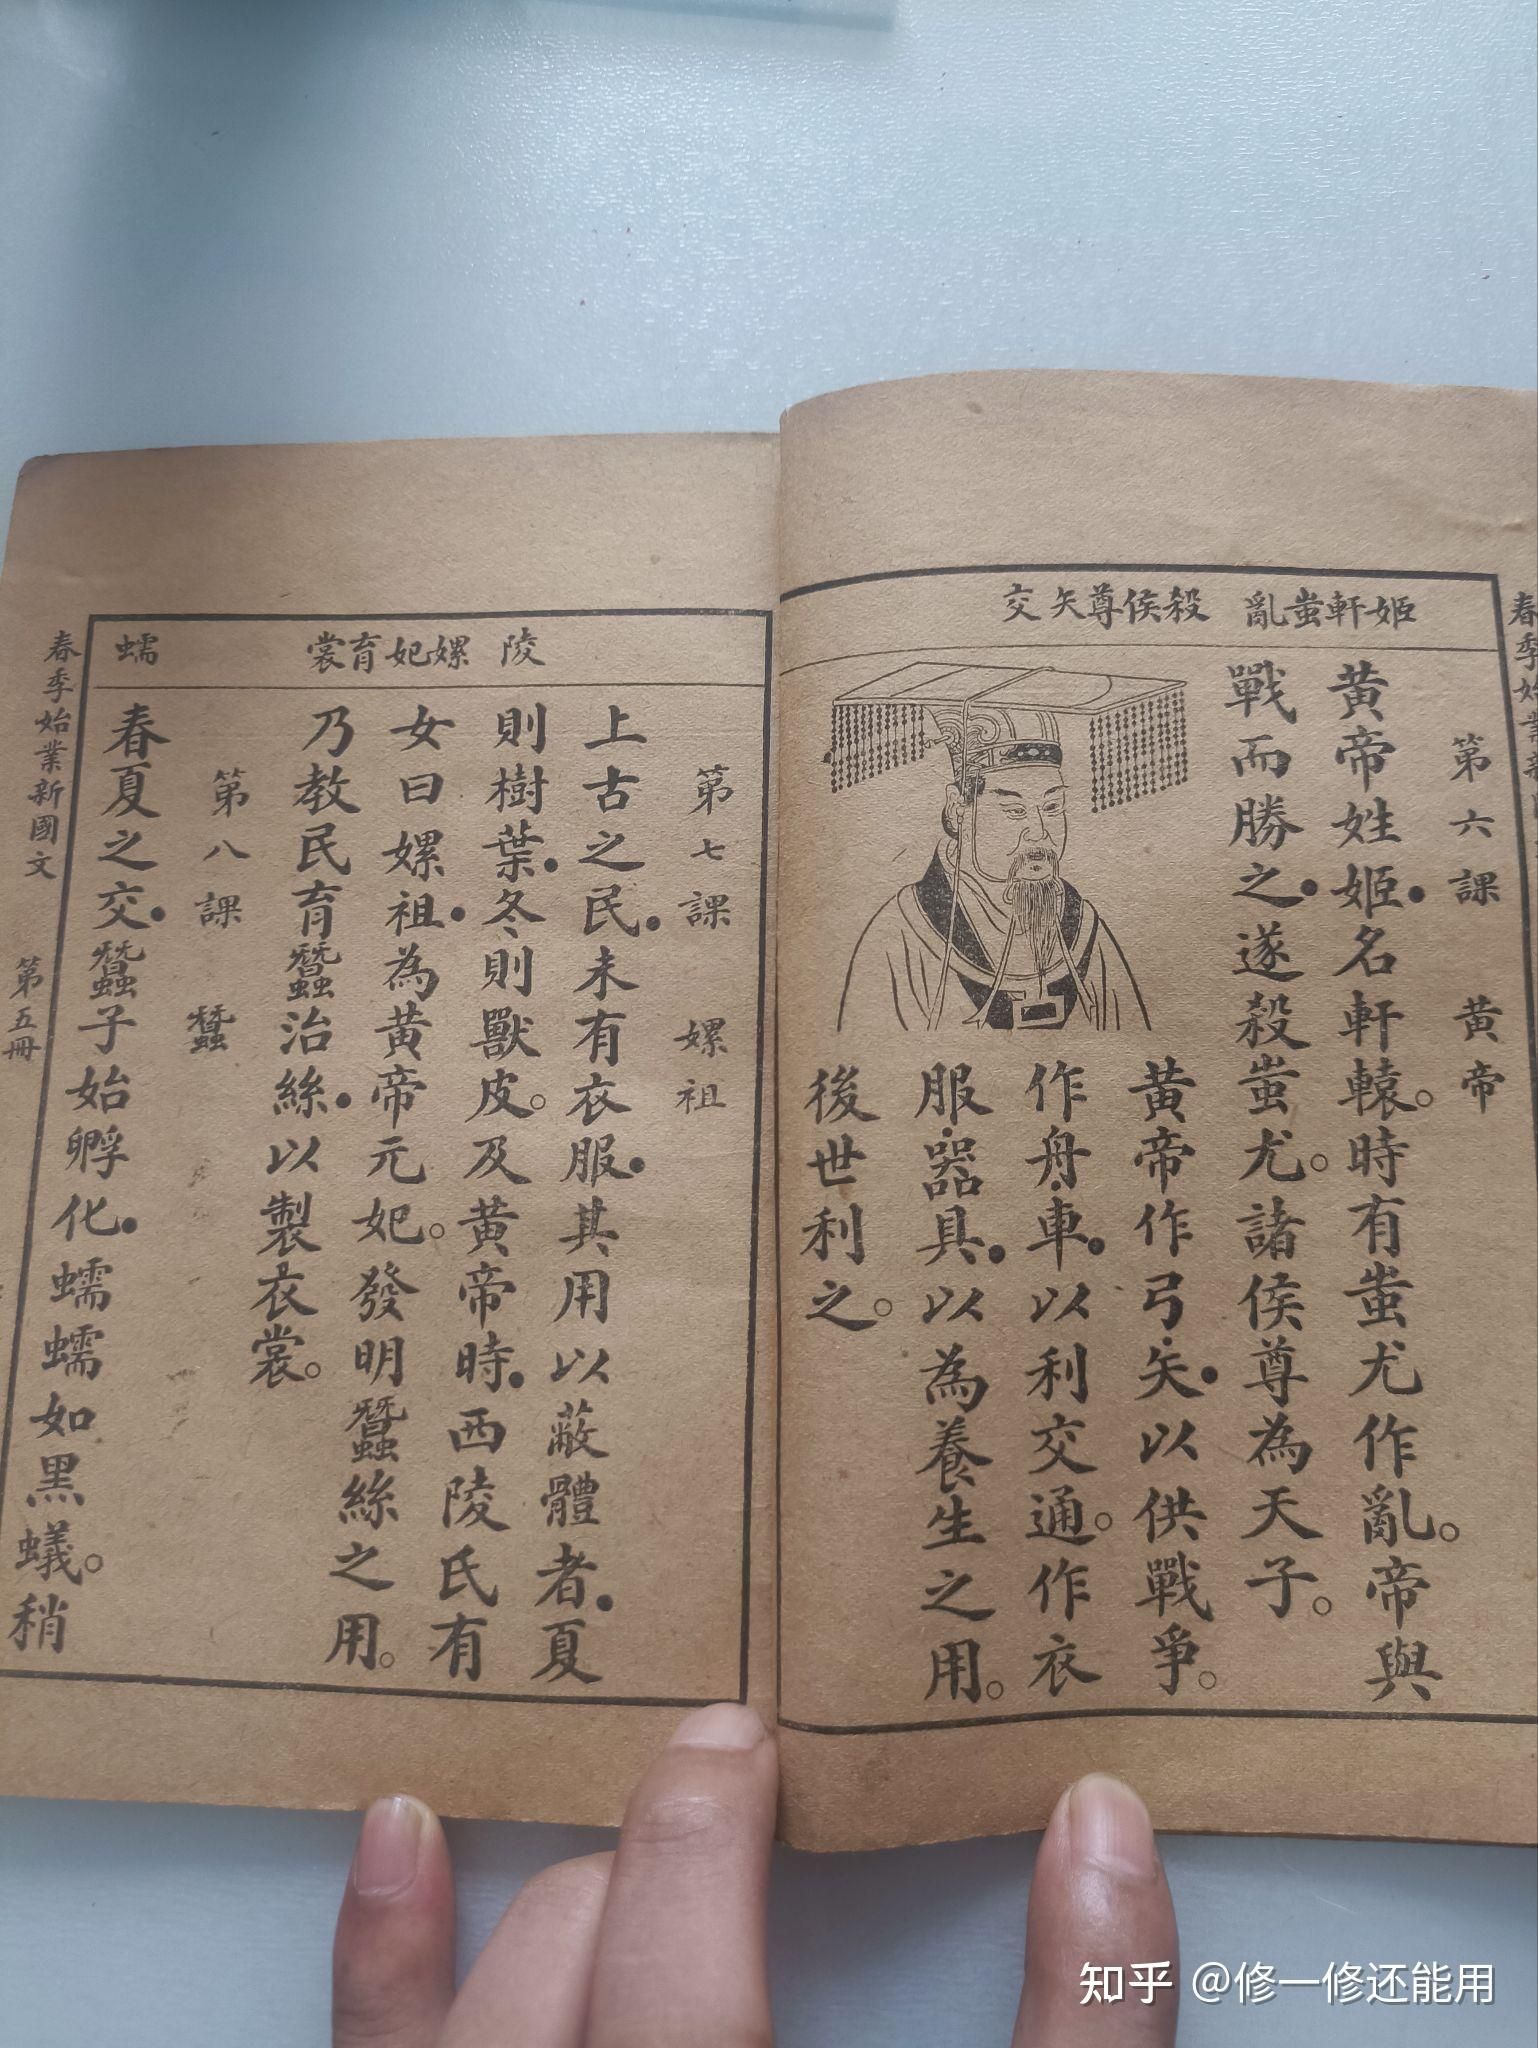 姬軒蚩亂　殺侯尊矢交
第六課　黃帝
黃帝姓姬．名軒轅。時有蚩尤作亂。帝與
戰而勝之．遂殺蚩尤。諸侯尊為天子。
黃帝作弓．矢．以供戰爭。
作舟．車．以利交通。作衣
服．器具．以為養生之用。
後世利之。
陵　嫘妃育裳　蠕
第七課　嫘祖
上古之民．未有衣服．其用以蔽體者．夏
則樹葉．冬則獸皮。及黃帝時．西陵氏有
女曰嫘祖．為黃帝元妃。發明蠶絲之用。
乃教民育蠶治絲．以製衣裳。
第八課　蠶
春夏之交．蠶子始孵化．蠕蠕如黑蟻。稍
春季始業新國文　第五冊
知乎 @修一修还能用